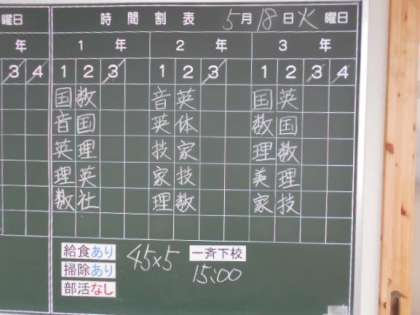 曜日 時間割表 5月18日火曜日
年 1年 2年 3年
3 4 1 2 3 1 2 3 1 2 3 4
国 数 音 英 国 英
音 国 英 体 数 国
英 理 技 家 理 数
理 英 家 技 美 理
数 社 理 数 家 技
給食あり 45×5 一斉下校
掃除あり 15:00
部活なし